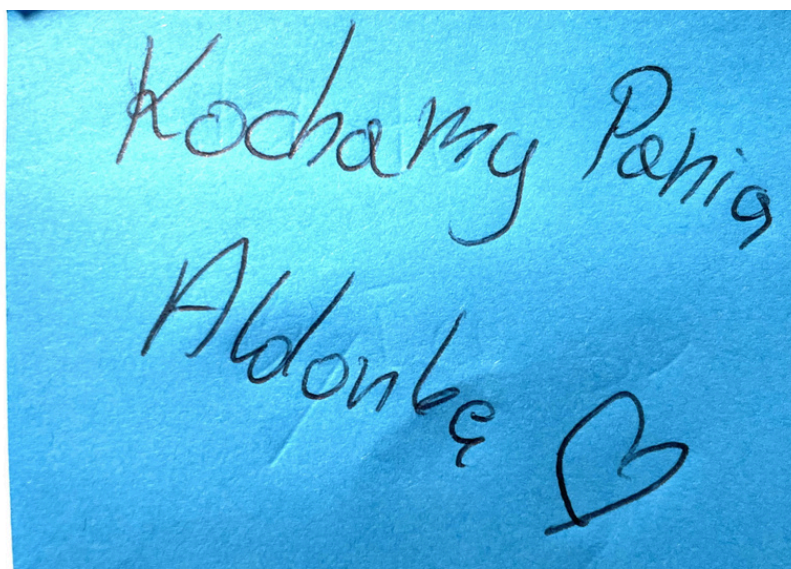 Kochamy Panią
Aldonkę